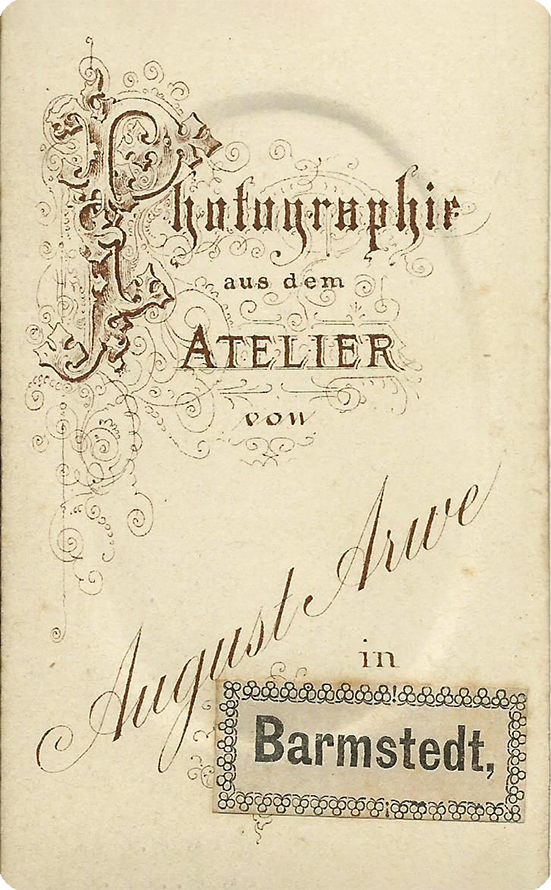 Photographie
aus dem
ATELIER
von
August Arwe
in
Barmstedt,